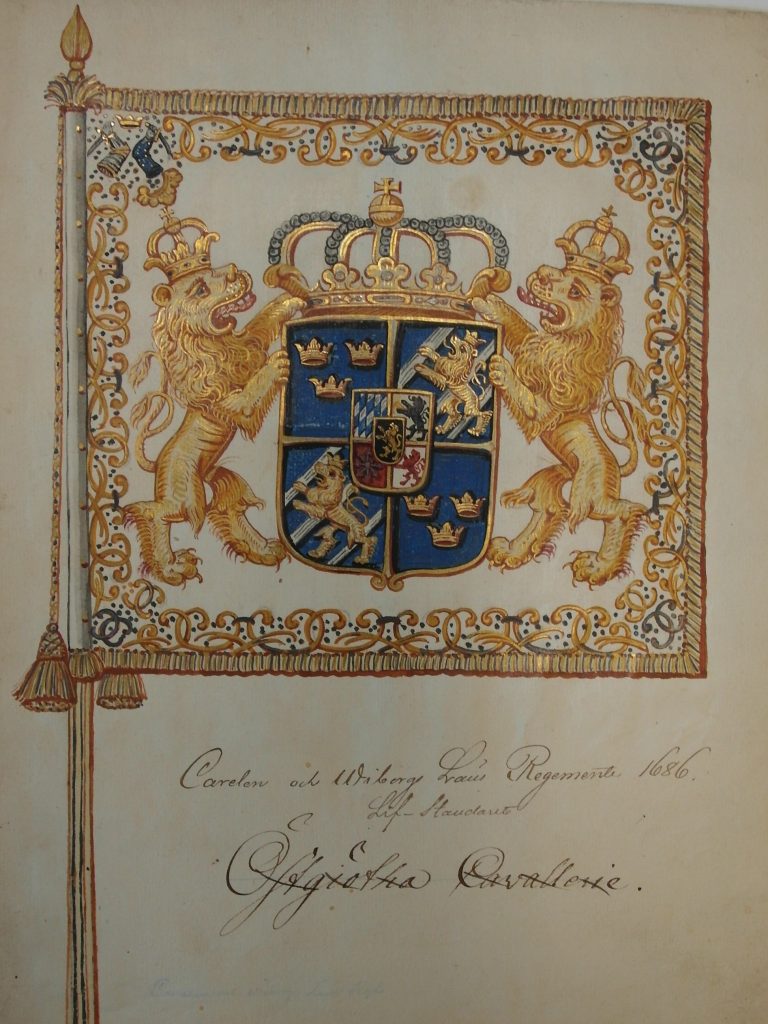 Carelen och Wiborgs Läns Regemente 1686.
Lif-Standaret
Östgiötha Cavallerie.